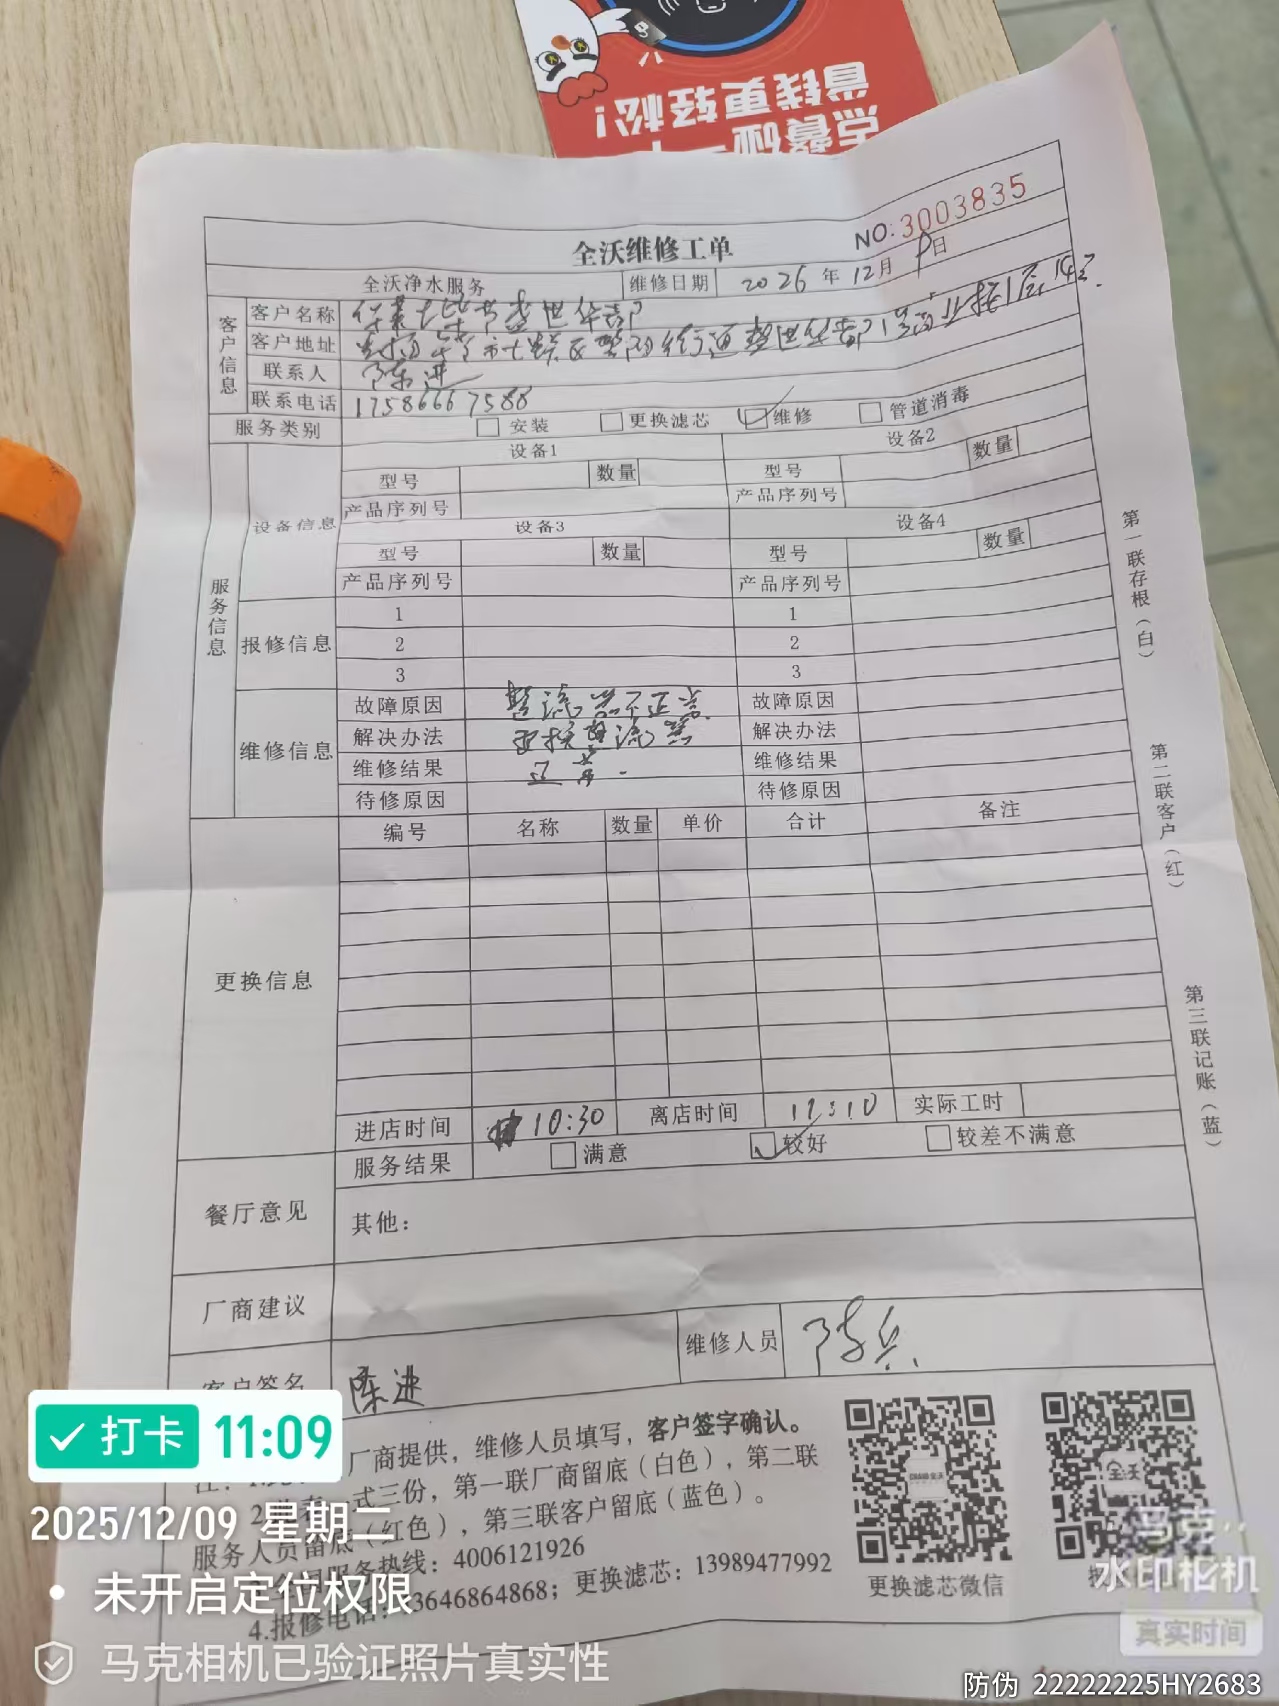 点餐碰一下
省钱更轻松!
NO:3003835
全沃维修工单
全沃净水服务 维修日期 2026 年 12 月 9 日
客户信息
客户名称 华都
客户地址
联系人 陈进
联系电话 17586667588
服务类别 安装 更换滤芯 维修 管道消毒
服务信息
设备信息
设备1 设备2
型号 数量 型号 数量
产品序列号 产品序列号
设备3 设备4
型号 数量 型号 数量
产品序列号 产品序列号
报修信息
1 1
2 2
3 3
维修信息
故障原因 整流器不正常 故障原因
解决办法 更换整流器 解决办法
维修结果 正常. 维修结果
待修原因 待修原因
更换信息
编号 名称 数量 单价 合计 备注
进店时间 10:30 离店时间 11:10 实际工时
服务结果 满意 较好 较差不满意
餐厅意见 其他:
厂商建议
维修人员 陈兵
客户签名 陈进
厂商提供,维修人员填写,客户签字确认。
式三份,第一联厂商留底(白色),第二联
服务人员留底(红色),第三联客户留底(蓝色)。
服务热线:4006121926
4.报修电话:13646864868;更换滤芯:13989477992
更换滤芯微信
第一联存根(白)
第二联客户(红)
第三联记账(蓝)
打卡 11:09
2025/12/09 星期二
未开启定位权限
马克相机已验证照片真实性
马克
水印相机
真实时间
防伪 22222225HY2683